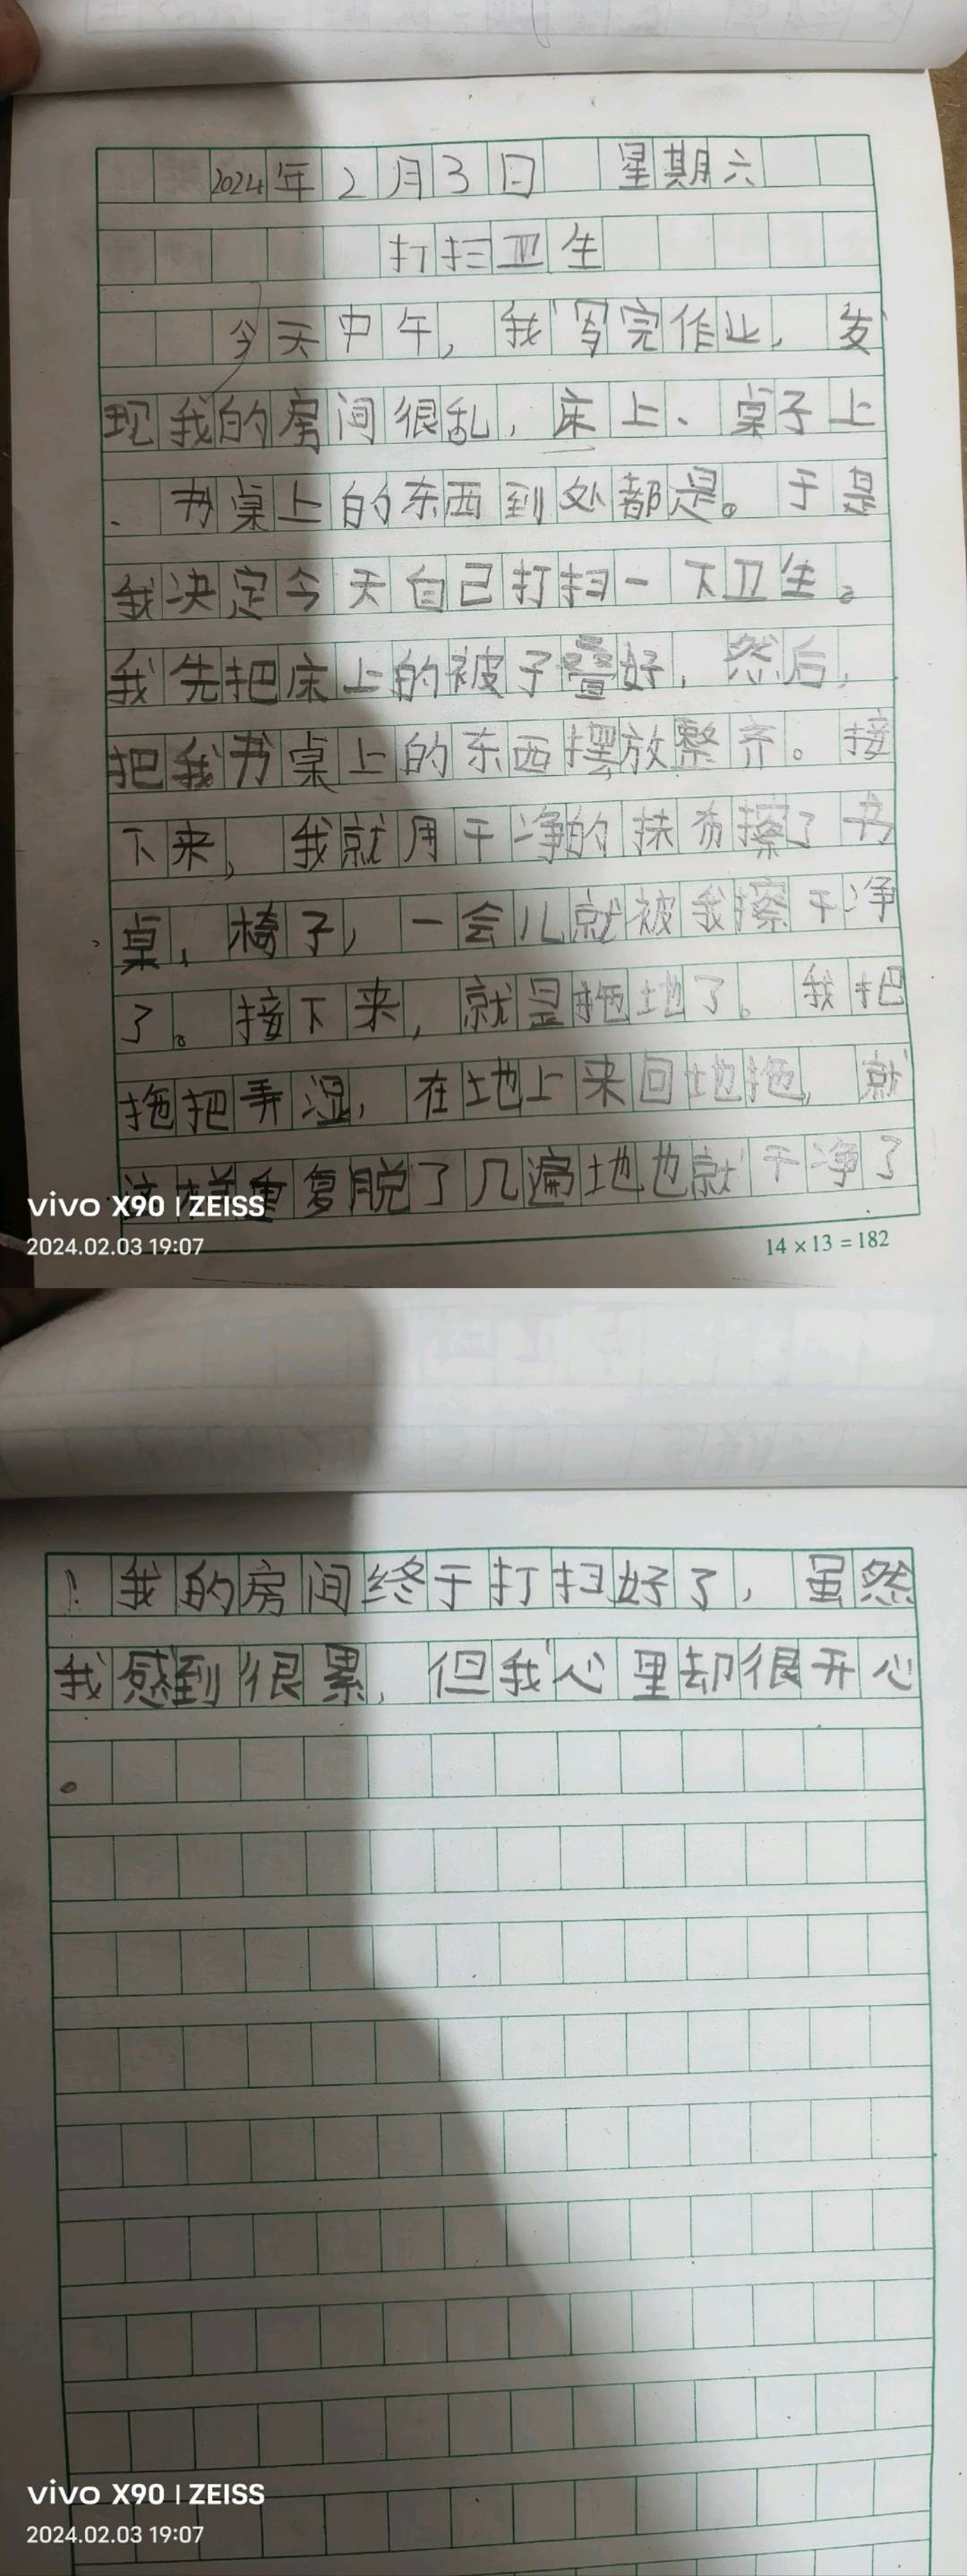 2024年2月3日 星期六
打扫卫生
今天中午，我写完作业，发
现我的房间很乱，床上、桌子上
、书桌上的东西到处都是。于是
我决定今天自己打扫一下卫生。
我先把床上的被子叠好，然后，
把我书桌上的东西摆放整齐。接
下来，我就用干净的抹布擦了书
桌，椅子，一会儿就被我擦干净
了。接下来，就是拖地了。我把
拖把弄湿，在地上来回地拖，就
这样重复脱了几遍地也就干净了
vivo X90 | ZEISS
2024.02.03 19:07
14×13=182
！我的房间终于打扫好了，虽然
我感到很累，但我心里却很开心
。
vivo X90 | ZEISS
2024.02.03 19:07